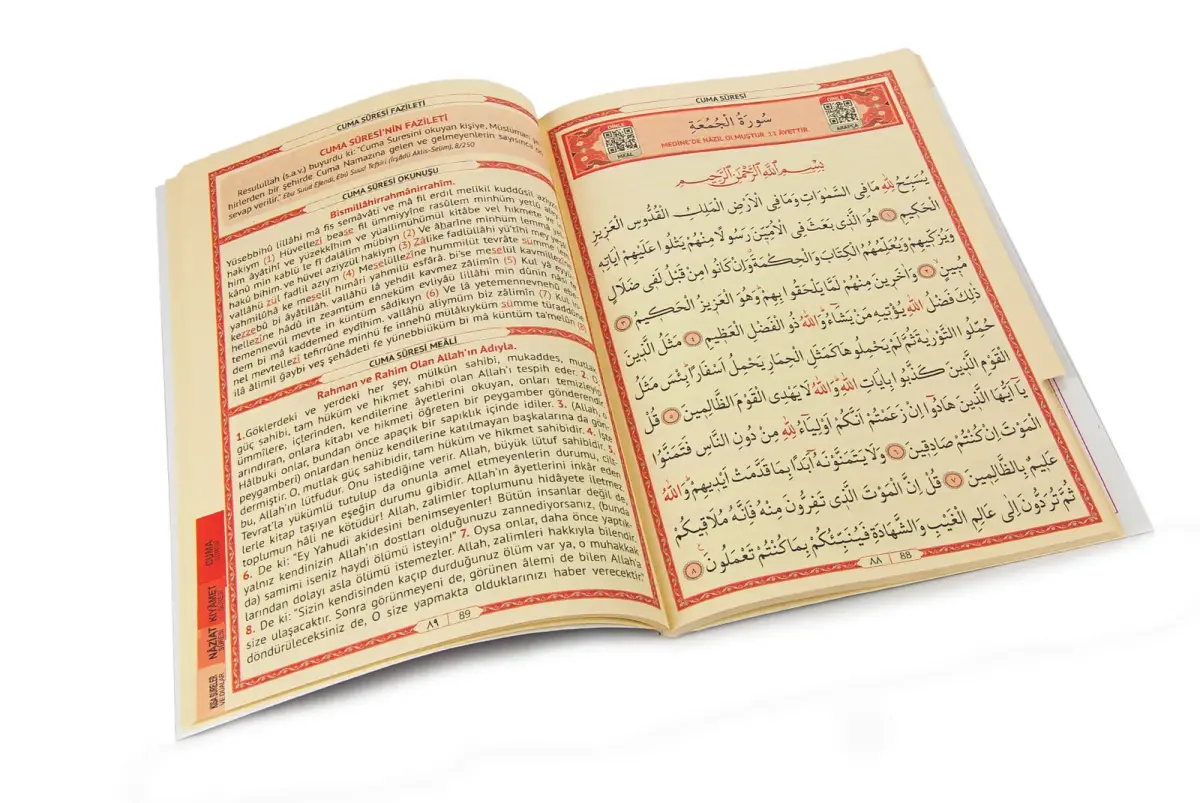 CUMA SÛRESİ
سُورَةُ الْجُمُعَةِ
MEDİNE'DE NÂZİL OLMUŞTUR. 11 ÂYETTİR.
MEAL
ARAPÇA
بِسْمِ اللّٰهِ الرَّحْمٰنِ الرَّحِيمِ
يُسَبِّحُ لِلّٰهِ مَا فِي السَّمٰوَاتِ وَمَا فِي الْاَرْضِ الْمَلِكِ الْقُدُّوسِ الْعَزِيزِ
الْحَكِيمِ ﴿١﴾ هُوَ الَّذِي بَعَثَ فِي الْاُمِّيّنَ رَسُولًا مِنْهُمْ يَتْلُوا عَلَيْهِمْ اٰيَاتِهِ
وَيُزَكِّيهِمْ وَيُعَلِّمُهُمُ الْكِتَابَ وَالْحِكْمَةَ وَاِنْ كَانُوا مِنْ قَبْلُ لَفِي ضَلَالٍ
مُبِينٍ ﴿٢﴾ وَاٰخَرِينَ مِنْهُمْ لَمَّا يَلْحَقُوا بِهِمْ وَهُوَ الْعَزِيزُ الْحَكِيمُ ﴿٣﴾
ذٰلِكَ فَضْلُ اللّٰهِ يُؤْتِيهِ مَنْ يَشَاءُ وَاللّٰهُ ذُو الْفَضْلِ الْعَظِيمِ ﴿٤﴾ مَثَلُ الَّذِينَ
حُمِّلُوا التَّوْرٰيةَ ثُمَّ لَمْ يَحْمِلُوهَا كَمَثَلِ الْحِمَارِ يَحْمِلُ اَسْفَارًا بِئْسَ مَثَلُ
الْقَوْمِ الَّذِينَ كَذَّبُوا بِاٰيَاتِ اللّٰهِ وَاللّٰهُ لَا يَهْدِي الْقَوْمَ الظَّالِمِينَ ﴿٥﴾ قُلْ
يَا اَيُّهَا الَّذِينَ هَادُوا اِنْ زَعَمْتُمْ اَنَّكُمْ اَوْلِيَاءُ لِلّٰهِ مِنْ دُونِ النَّاسِ فَتَمَنَّوُا
الْمَوْتَ اِنْ كُنْتُمْ صَادِقِينَ ﴿٦﴾ وَلَا يَتَمَنَّوْنَهُ اَبَدًا بِمَا قَدَّمَتْ اَيْدِيهِمْ وَاللّٰهُ
عَلِيمٌ بِالظَّالِمِينَ ﴿٧﴾ قُلْ اِنَّ الْمَوْتَ الَّذِي تَفِرُّونَ مِنْهُ فَاِنَّهُ مُلَاقِيكُمْ
ثُمَّ تُرَدُّونَ اِلٰى عَالِمِ الْغَيْبِ وَالشَّهَادَةِ فَيُنَبِّئُكُمْ بِمَا كُنْتُمْ تَعْمَلُونَ ﴿٨﴾
٨٨ 88
CUMA SÛRESİ FAZİLETİ
CUMA SÛRESİ'NİN FAZİLETİ
Resulullah (s.a.v.) buyurdu ki: "Cuma Suresini okuyan kişiye, Müslüman
hirlerden bir şehirde Cuma Namazına gelen ve gelmeyenlerin sayısınca
sevap verilir." Ebû Suud Efendi, Ebû Suud Tefsiri (İrşâdü Aklis-Selîm), 8/250
CUMA SÛRESİ OKUNUŞU
Bismillâhirrahmânirrahîm.
Yüsebbihû lillâhi mâ fis semâvâti ve mâ fil erdil melikil kuddûsil azîzil
hakiym (1) Hüvellezî bease fil ümmiyyîne rasûlem minhüm yetlû aleyhim
him âyâtihî ve yüzekkîhim ve yüallimühümül kitâbe vel hikmete ve in
kânû min kablü le fî dalâlim mübiyn (2) Ve âharîne minhüm lemmâ yel
hakû bihim. ve hüvel aziyzül hakiym (3) Zâlike fadlüllâhi yü'tîhi mey yeşâ'
vallâhü zül fadlil aziym (4) Meselüllezîne hummilüt tevrâte sümme lem
yahmilûhâ ke meselil hımâri yahmilü esfârâ. bi'se meselül kavmillezîne
kezzebû bi âyâtillâh. vallâhü lâ yehdil kavmez zâlimîn (5) Kul yâ eyyü
hellezîne hâdû in zeamtüm enneküm evliyâü lillâhi min dûnin nâsi fe
temennevül mevte in küntüm sâdikıyn (6) Ve lâ yetemennevnehû ebe
dem bi mâ kaddemed eydîhim. vallâhü aliymüm biz zâlimîn (7) Kul in
nel mevtellezî tefirrûne minhü fe innehû mülâkıyküm sümme türaddûne
ilâ âlimil ğaybi veş şehâdeti fe yünebbiüküm bi mâ küntüm ta'melûn (8)
CUMA SÛRESİ MEÂLİ
Rahman ve Rahim Olan Allah'ın Adıyla.
1. Göklerdeki ve yerdeki her şey, mülkün sahibi, mukaddes, mutlak
güç sahibi, tam hüküm ve hikmet sahibi olan Allah'ı tespih eder. 2. O,
ümmîlere, içlerinden, kendilerine âyetlerini okuyan, onları temizleyip
arındıran, onlara kitabı ve hikmeti öğreten bir peygamber gönderendir.
Hâlbuki onlar, bundan önce apaçık bir sapıklık içinde idiler. 3. (Allah, o
peygamberi) onlardan henüz kendilerine katılmayan başkalarına da gön-
dermiştir. O, mutlak güç sahibidir, tam hüküm ve hikmet sahibidir. 4. İşte
bu, Allah'ın lütfudur. Onu istediğine verir. Allah, büyük lütuf sahibidir. 5.
Tevrat'la yükümlü tutulup da onunla amel etmeyenlerin durumu, cilt-
lerle kitap taşıyan eşeğin durumu gibidir. Allah'ın âyetlerini inkâr eden
toplumun hâli ne kötüdür! Allah, zalimler toplumunu hidâyete iletmez.
6. De ki: "Ey Yahudi akidesini benimseyenler! Bütün insanlar değil de,
yalnız kendinizin Allah'ın dostları olduğunuzu zannediyorsanız, (bunda
da) samimi iseniz haydi ölümü isteyin!" 7. Oysa onlar, daha önce yaptık-
larından dolayı asla ölümü istemezler. Allah, zalimleri hakkıyla bilendir.
8. De ki: "Sizin kendisinden kaçıp durduğunuz ölüm var ya, o muhakkak
size ulaşacaktır. Sonra görünmeyeni de, görünen âlemi de bilen Allah'a
döndürüleceksiniz de, O size yapmakta olduklarınızı haber verecektir."
٨٩ 89
CUMA
SÛRESİ
KIYÂMET
SÛRESİ
NÂZİAT
SÛRESİ
KISA SURELER
VE DUALAR